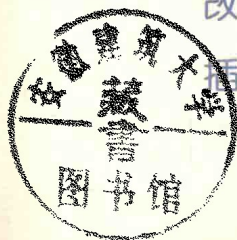 改
插
安徽建筑大学
藏
書
图书馆